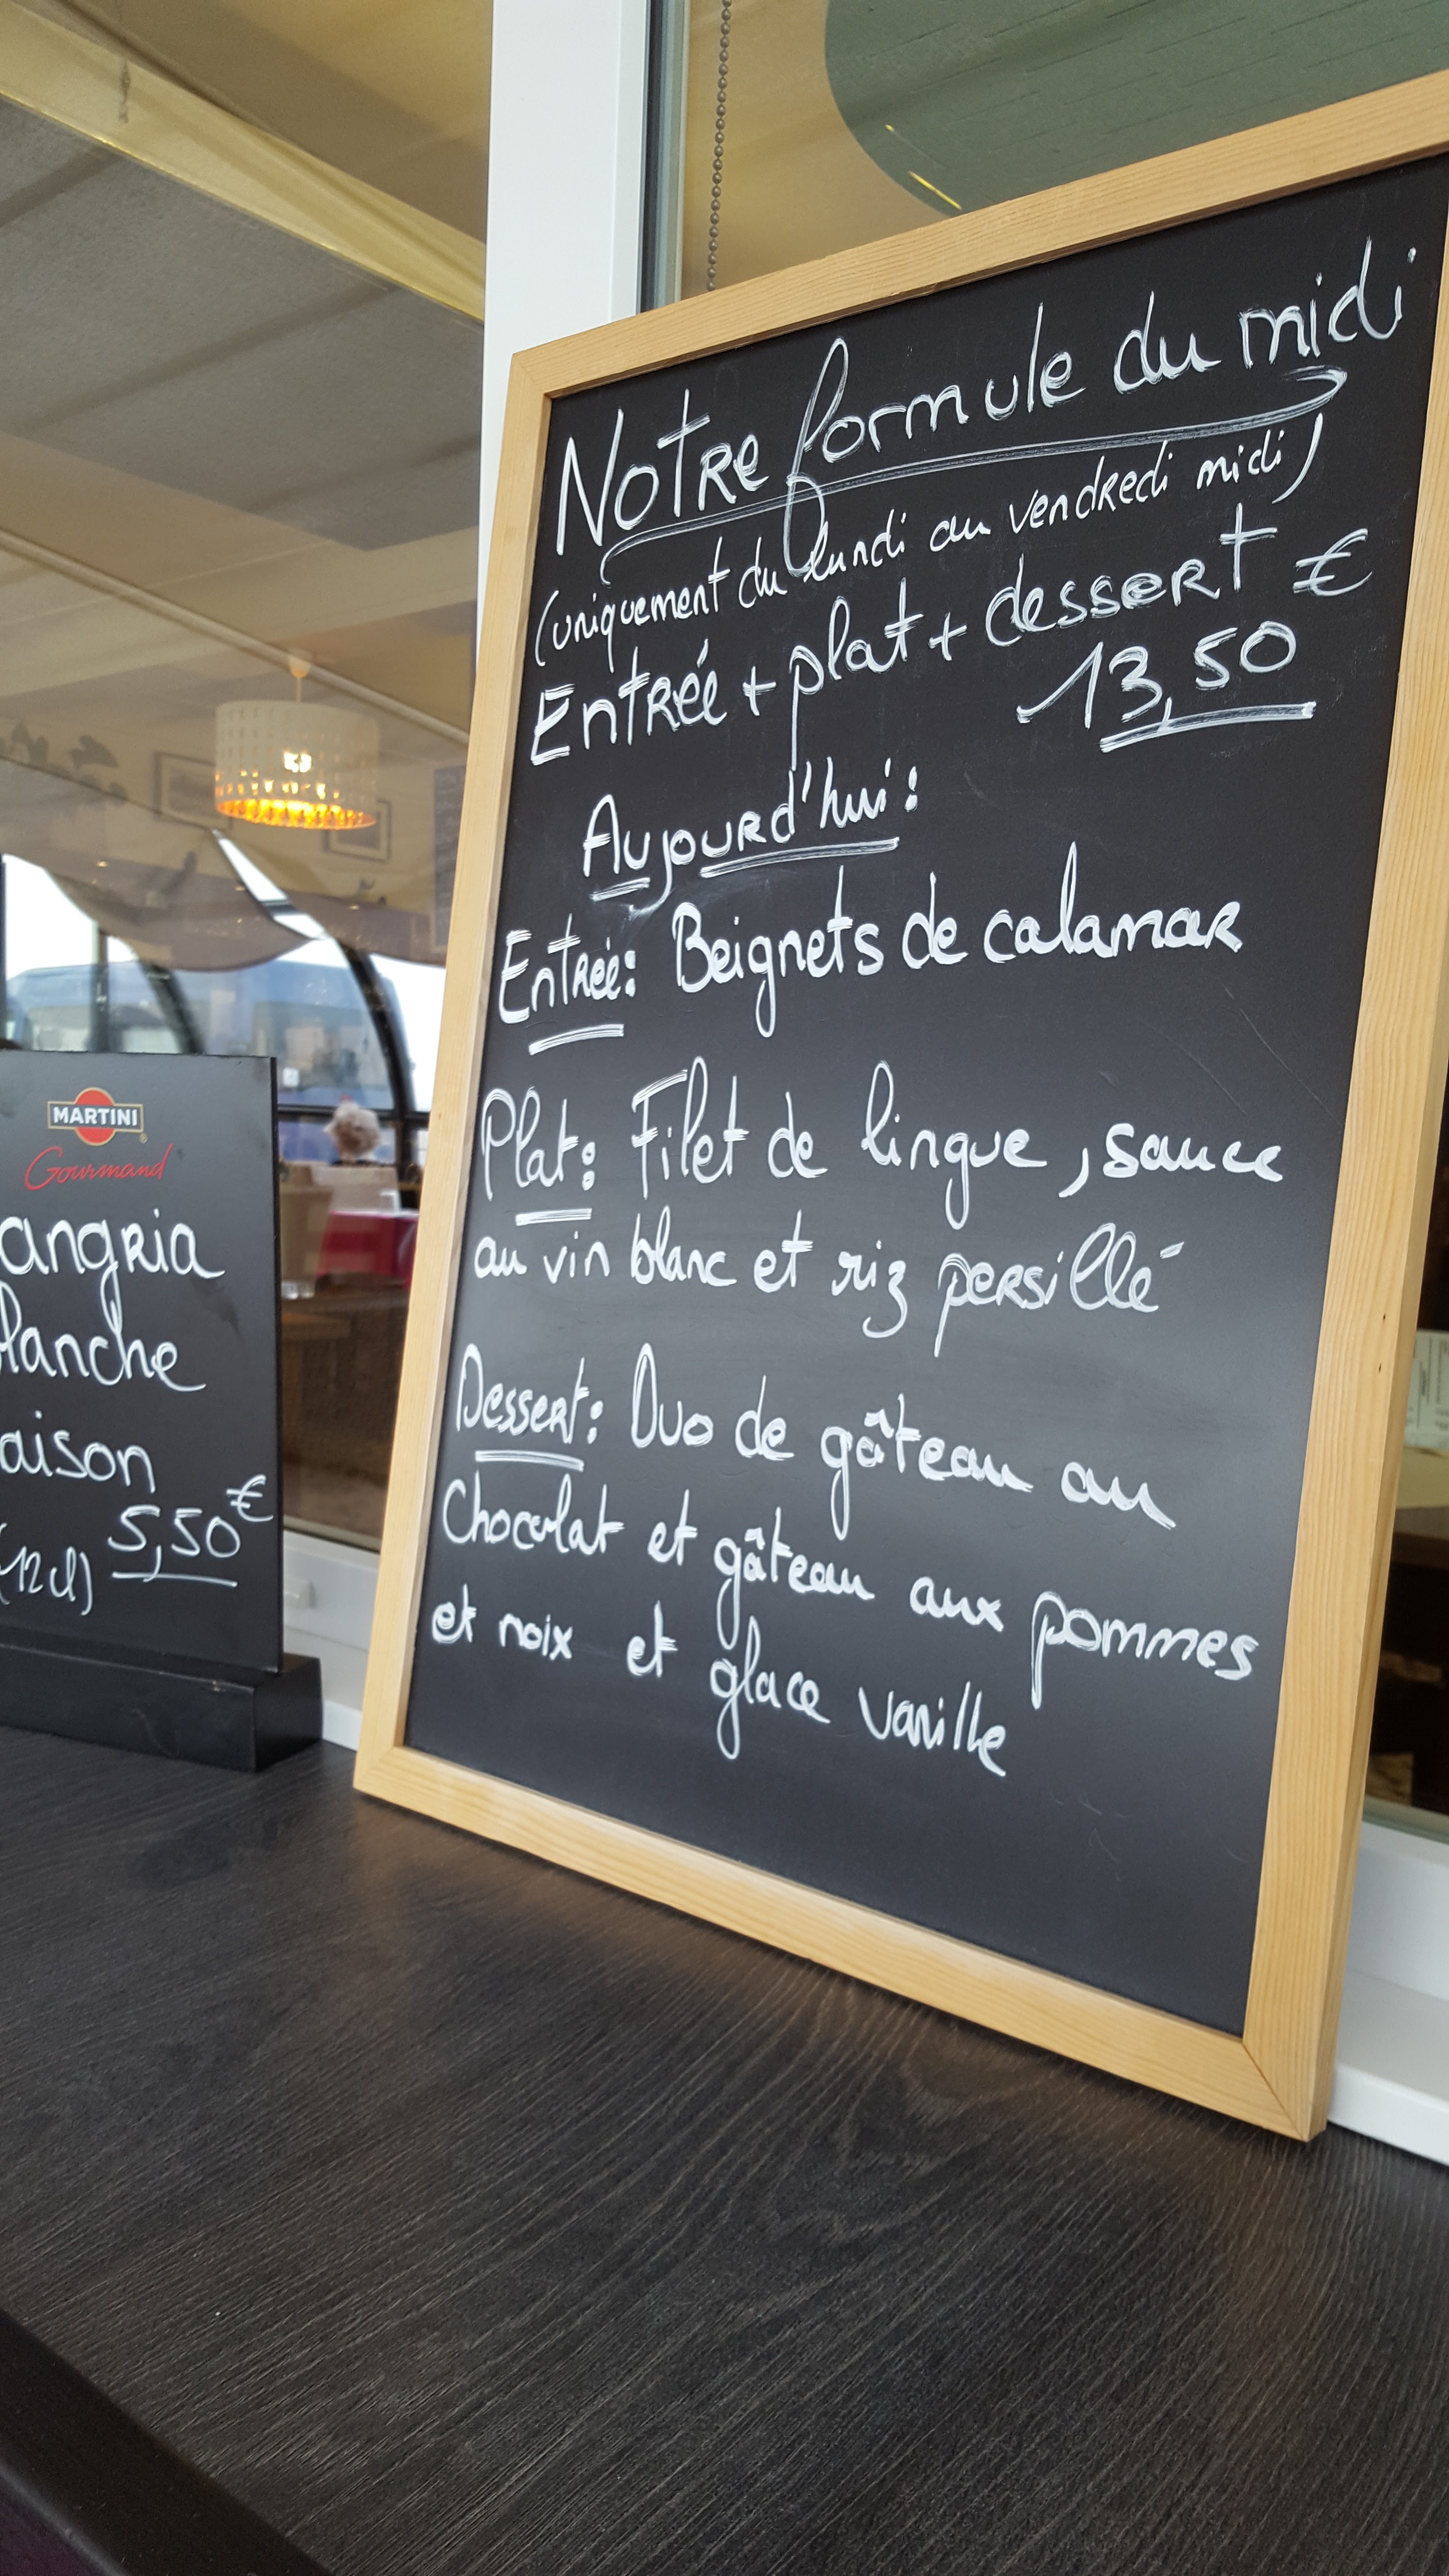 Notre formule du midi
(uniquement du lundi au vendredi midi)
Entrée + plat + dessert
13,50 €
Aujourd'hui :
Entrée : Beignets de calamar
Plat : Filet de lingue, sauce
au vin blanc et riz persillé
Dessert : Duo de gâteau au
Chocolat et gâteau aux pommes
et noix et glace vanille
MARTINI
Gourmand
angria
lanche
aison
5,50€
(12cl)